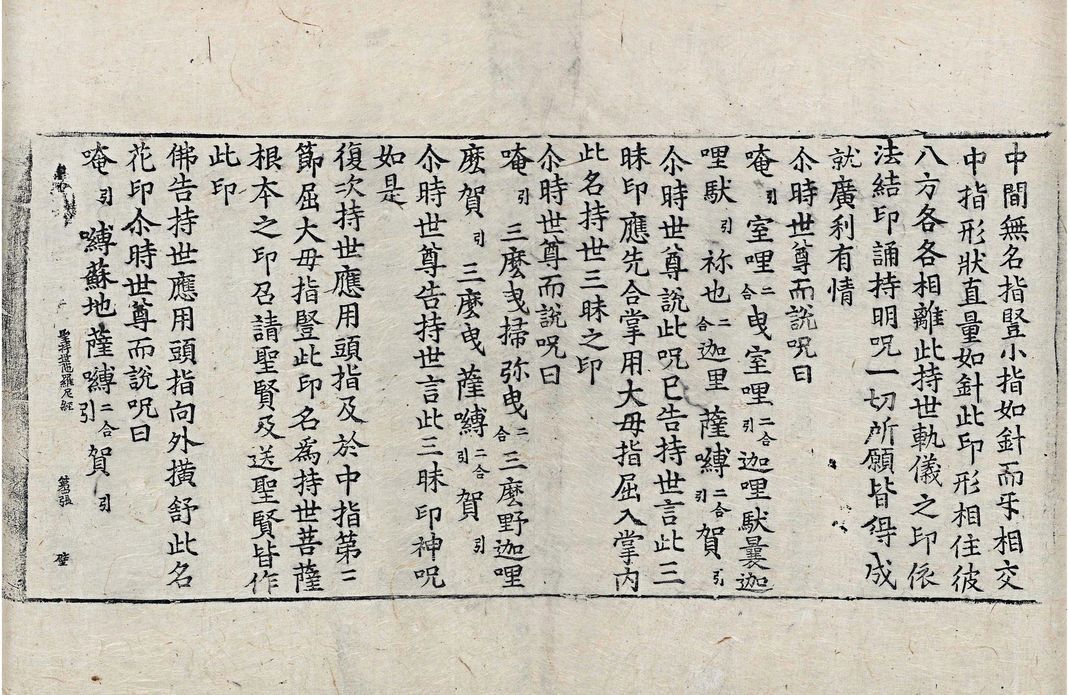 中間無名指豎小指如針而牙相交
中指形狀直量如針此印形相住彼
八方各各相離此持世軌儀之印依
法結印誦持明呪一切所願皆得成
就廣利有情
尒時世尊而說呪曰
唵引室哩二合曳室哩二合引迦哩馱曩迦
哩馱引祢也二合迦里薩嚩二合引賀引
尒時世尊說此呪已告持世言此三
昧印應先合掌用大毋指屈入掌內
此名持世三昧之印
尒時世尊而說呪曰
唵引三麼曳掃弥曳二合三麼野迦哩
麽賀引三麼曳薩嚩二合引賀引
尒時世尊告持世言此三昧印神呪
如是
復次持世應用頭指及於中指第二
節屈大毋指豎此印名為持世菩薩
根本之印召請聖賢及送聖賢皆作
此印
佛告持世應用頭指向外橫舒此名
花印尒時世尊而說呪曰
唵引嚩蘇地薩嚩二合引賀引
聖持世陁羅尼經 張 璧